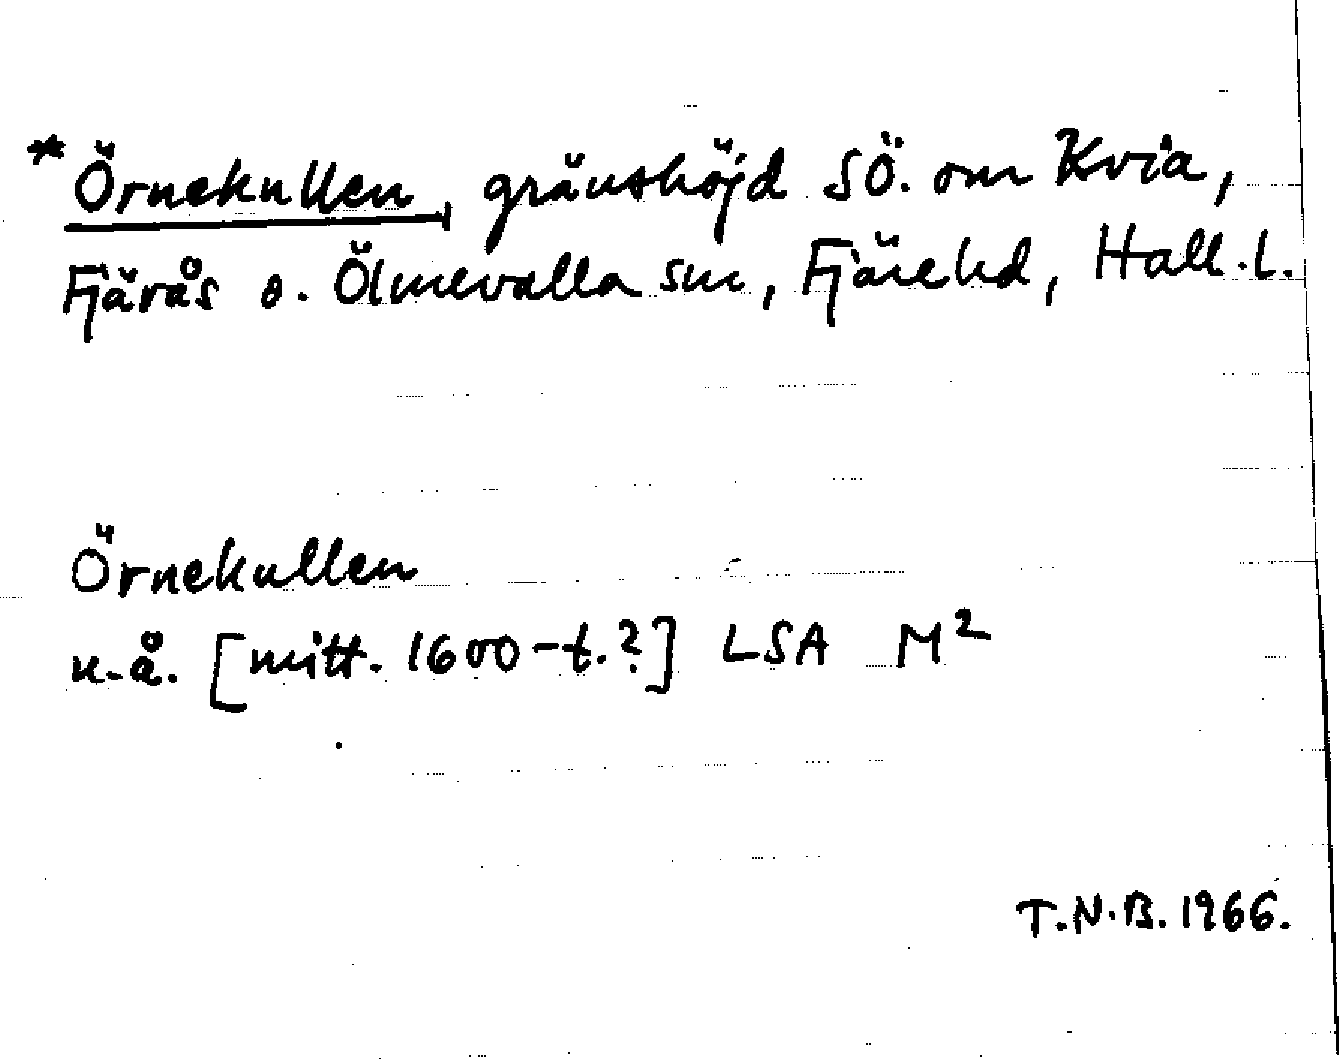 *Örnekullen, gränshöjd SÖ. om Kvia,
Fjärås o. Ölmevalla snr, Fjäre hd, Hall. l.
Örnekullen
u.å. [mitt. 1600-t.?] LSA M²
T.N.B. 1966.